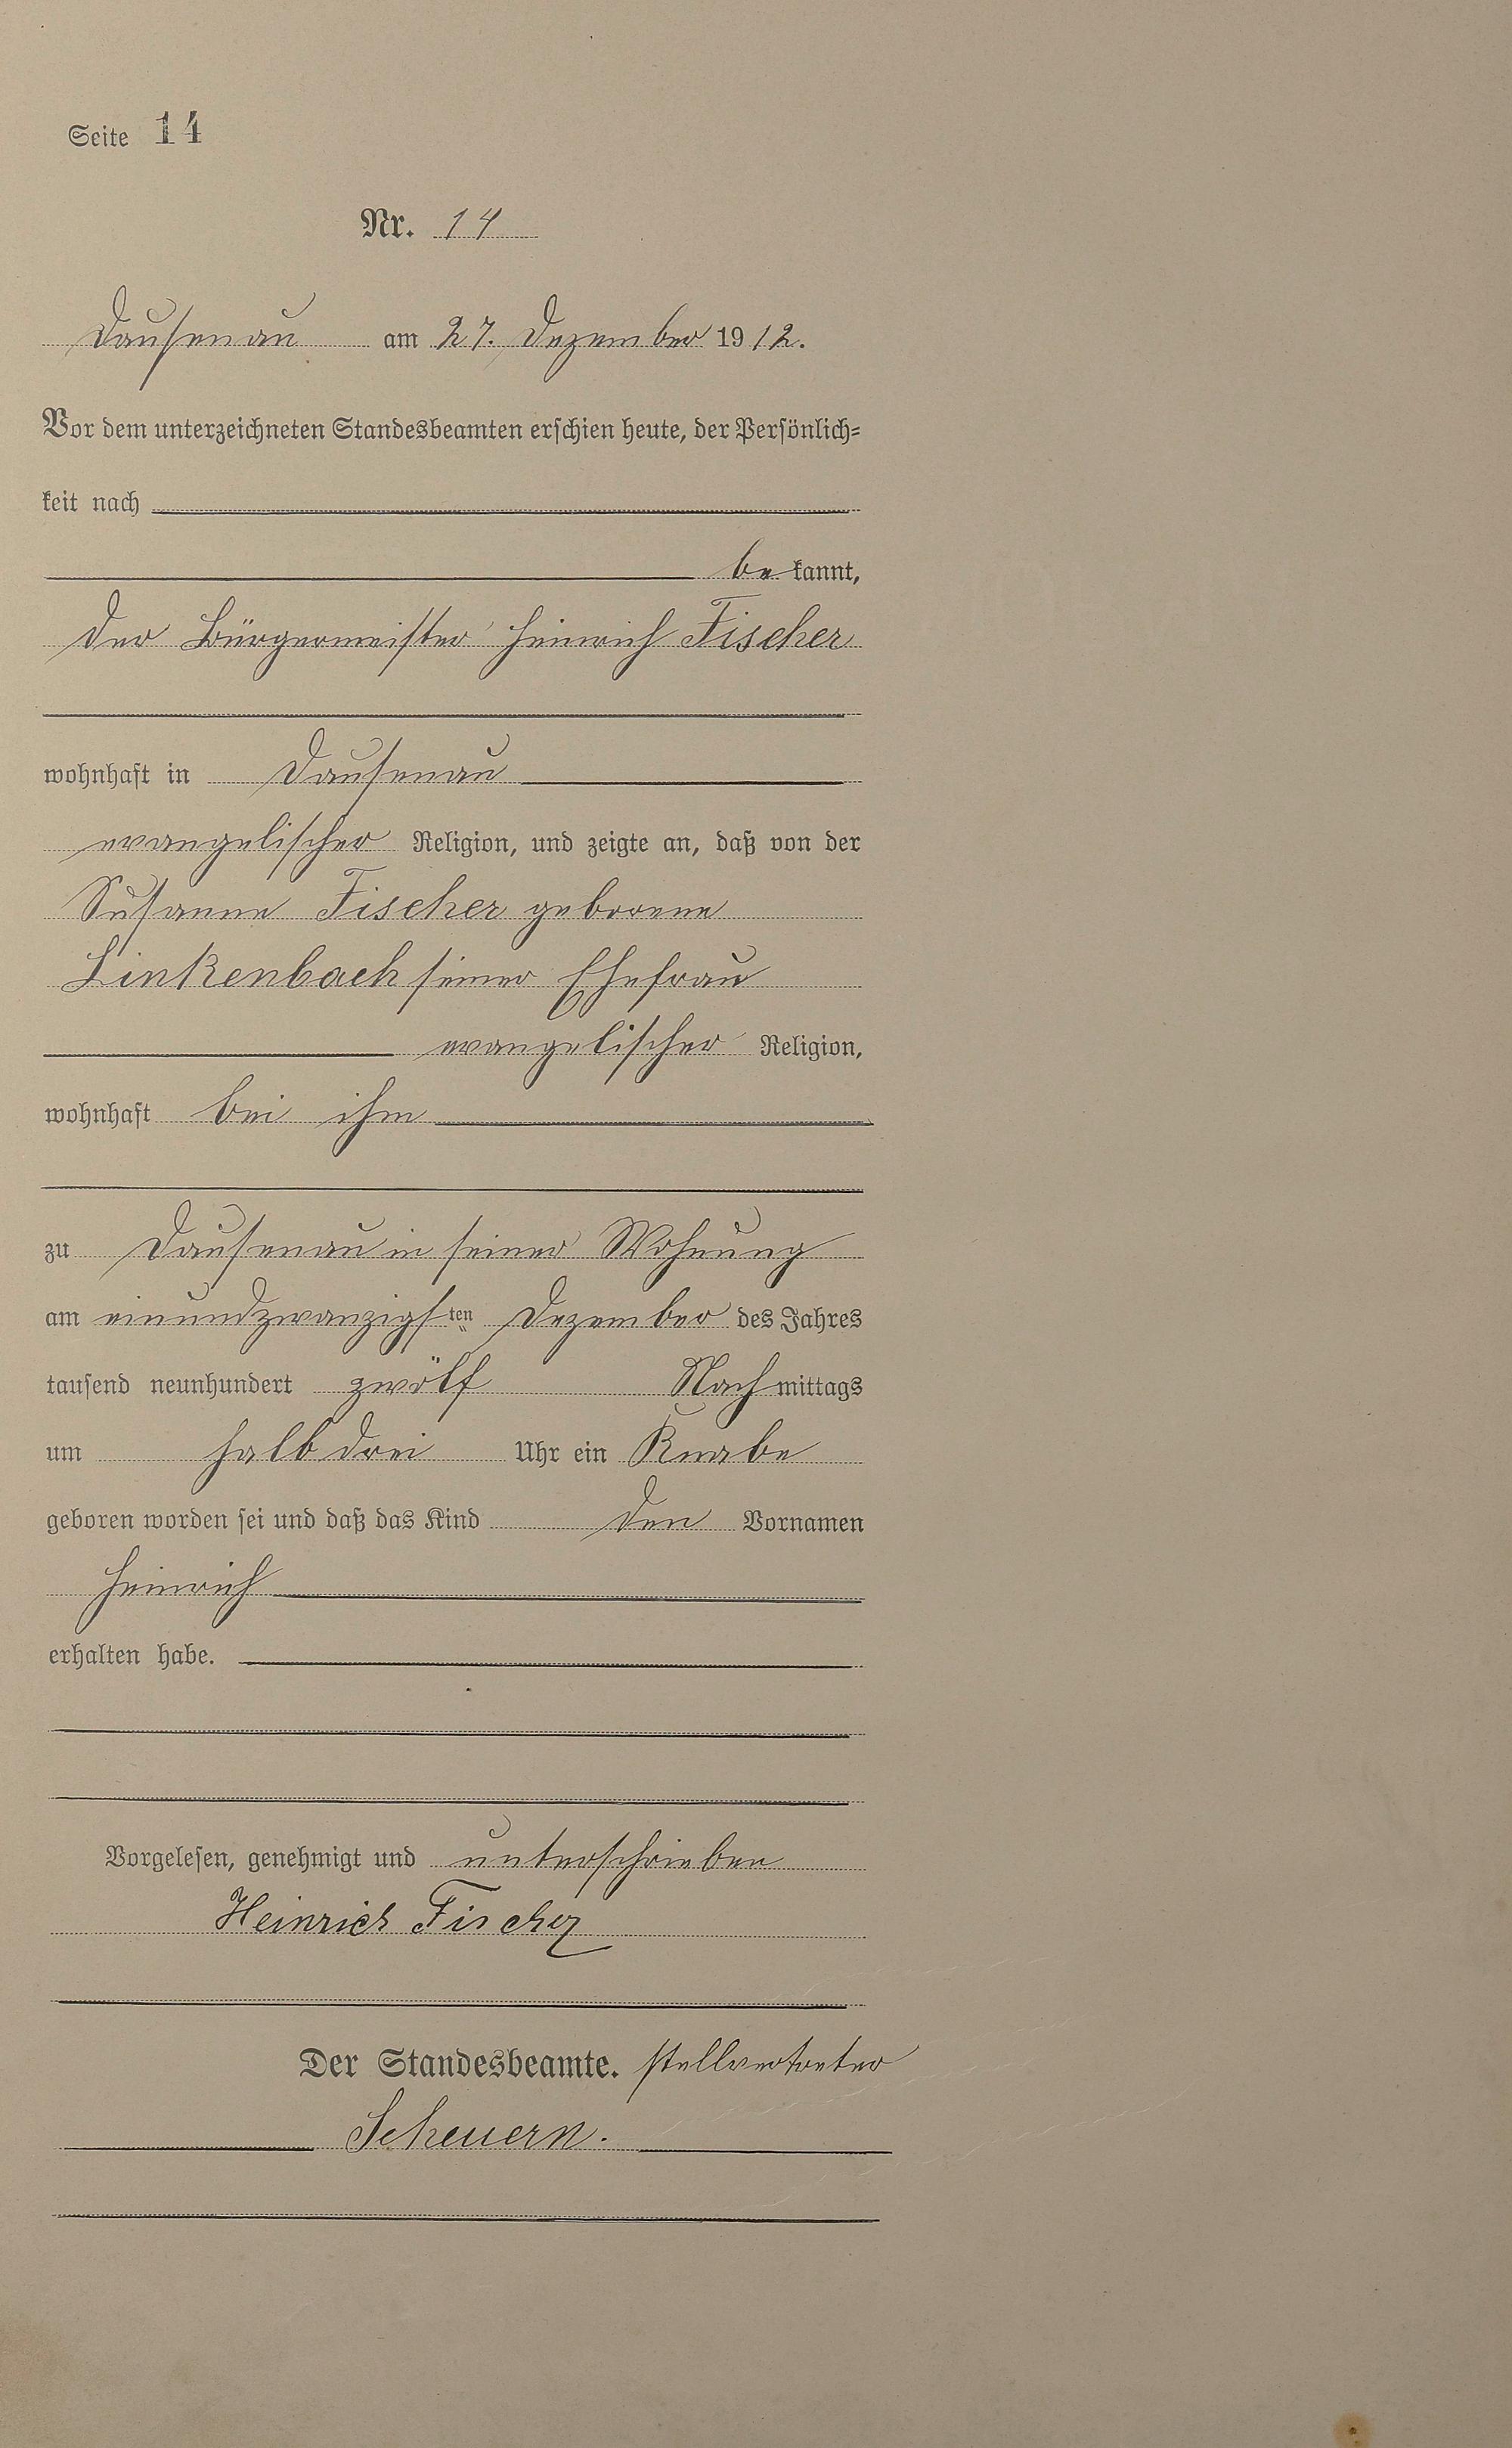 Seite 14
Nr. 14
Dausenau am 27. Dezember 1912.
Vor dem unterzeichneten Standesbeamten erschien heute, der Persönlich-
keit nach
be kannt,
der Bürgermeister Heinrich Fischer
wohnhaft in Dausenau
evangelischer Religion, und zeigte an, daß von der
Susanne Fischer geborene
Linkenbach seiner Ehefrau
evangelischer Religion,
wohnhaft bei ihm
zu Dausenau in seiner Wohnung
am einundzwanzigsten Dezember des Jahres
tausend neunhundert zwölf Nachmittags
um halb drei Uhr ein Knabe
geboren worden sei und daß das Kind den Vornamen
Heinrich
erhalten habe.
Vorgelesen, genehmigt und unterschrieben
Heinrich Fischer
Der Standesbeamte. stellvertreter
Scheuern.